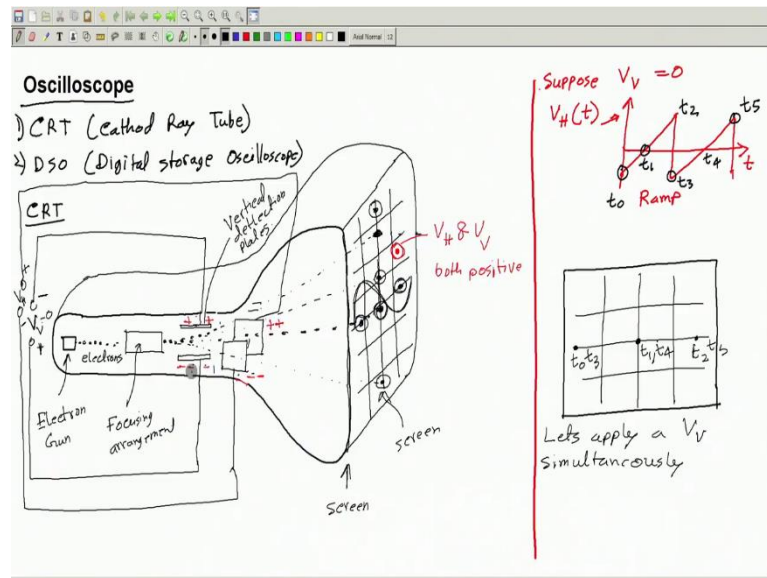 Axial Normal 12
Oscilloscope
1) CRT (Cathod Ray Tube)
2) DSO (Digital storage Oscilloscope)
CRT
Vertical
deflection
plates
electrons
Electron
Gun
Focusing
arrangement
screen
screen
V_H & V_V
both positive
Suppose V_V = 0
V_H(t)
t2
t5
t1
t4
t
t0
t3
Ramp
t0 t3
t1, t4
t2 t5
Lets apply a V_V
simultancously